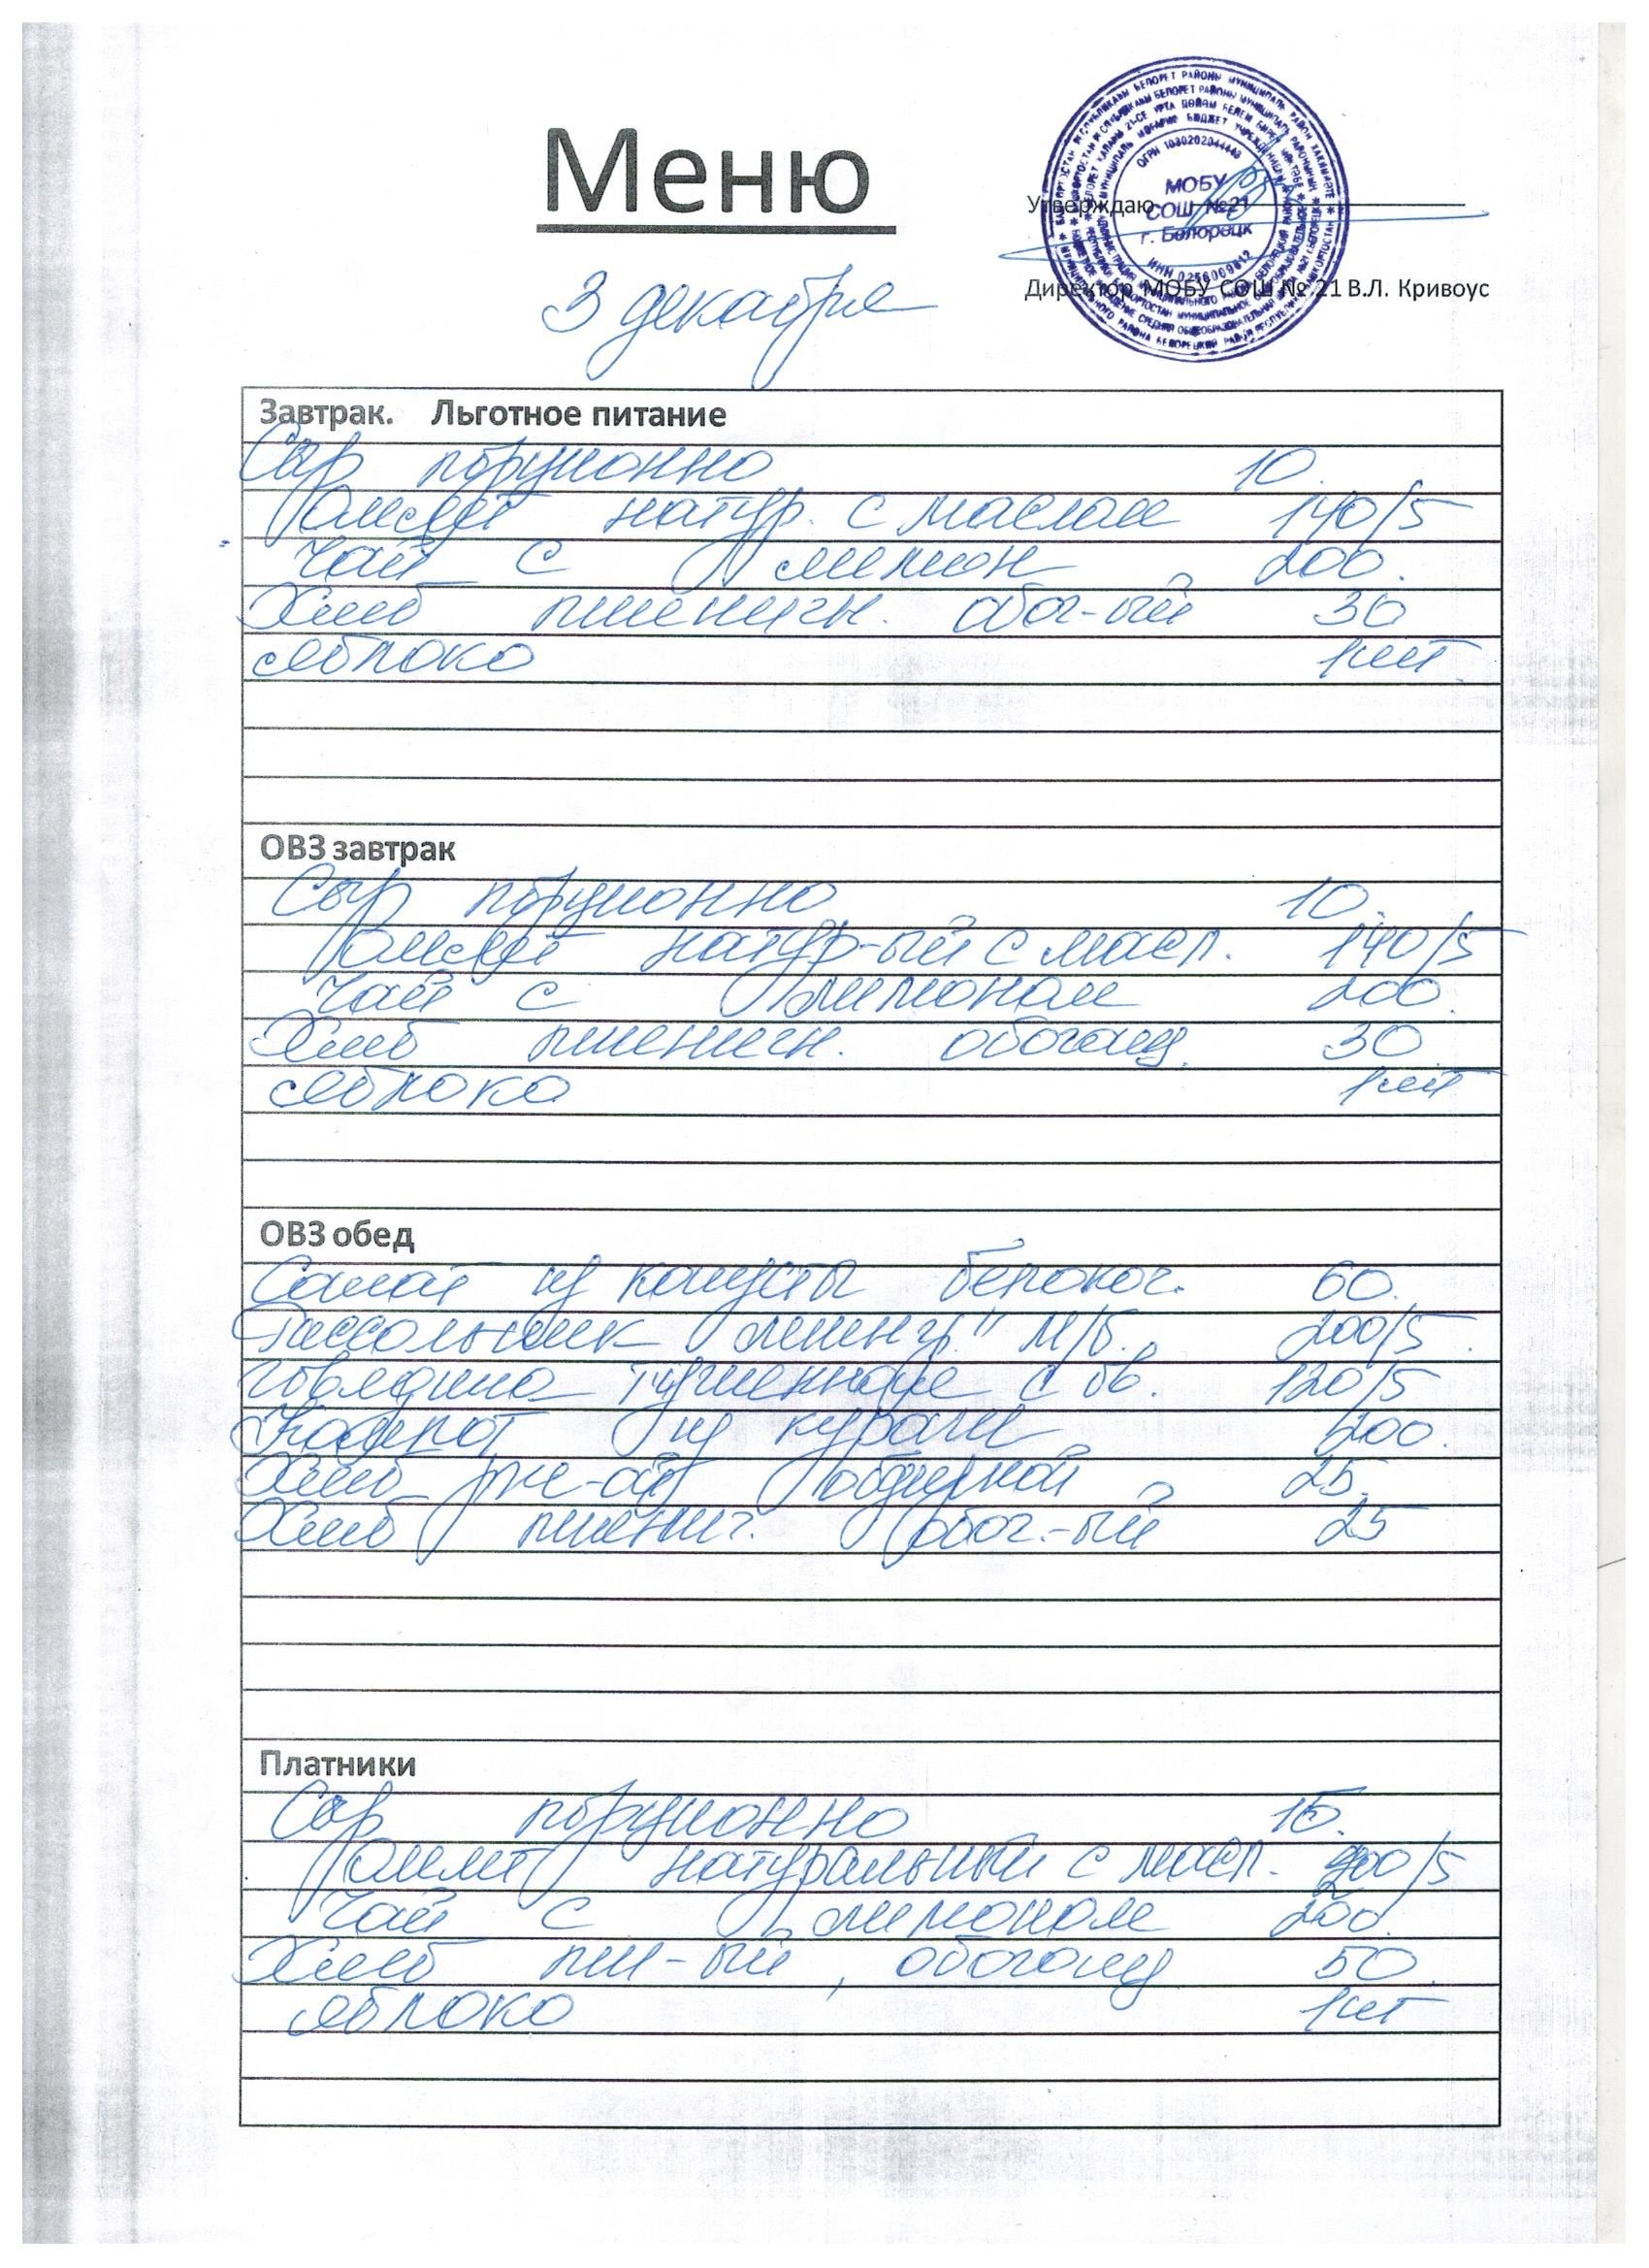 Меню
Утверждаю
МОБУ
СОШ №21
г. Белорецк
ОГРН 1030202044443
Директор МОБУ СОШ № 21 В.Л. Кривоус
3 декабря
Завтрак. Льготное питание
Сыр порционно 10.
Омлет натур. с маслом 140/5
Чай с лимон 200.
Хлеб пшеничн. обог-ый 30
яблоко 1шт.
ОВЗ завтрак
Сыр порционно 10.
Омлет натур-ый с масл. 140/5
Чай с лимоном 200.
Хлеб пшеничн. обогащ. 30
яблоко 1шт
ОВЗ обед
Салат из капусты белокоч. 60.
Рассольник "Ленингр." м/б. 200/5.
Говядина тушенная с ов. 120/5
Компот из кураги 200.
Хлеб рж-ой обдирной 25.
Хлеб пшенич. обог.-ый 25
Платники
Сыр порционно 15.
Омлет натуральный с масл. 200/5
Чай с лимоном 200.
Хлеб пш-ый, обогащ 50.
яблоко 1шт